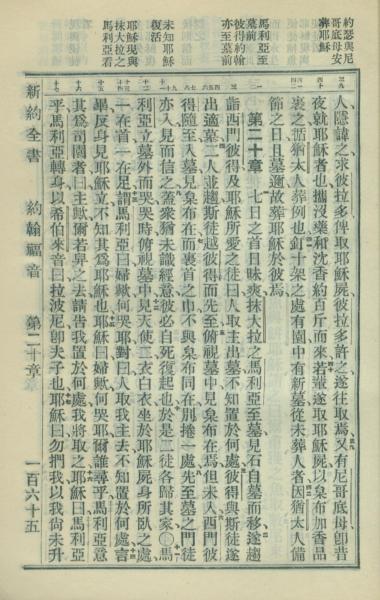 約瑟與尼
哥底母安
葬耶穌
馬利亞至
墓前
彼得約翰
亦至墓前
未知耶穌
復活
耶穌現與
抹大拉之
馬利亞看
人隱諱之求彼拉多俾取耶穌屍彼拉多許之遂往取焉又有尼哥底母卽昔
夜就耶穌者也攜沒藥和沈香約百斤而來若輩遂取耶穌屍以枲布加香品
裹之循猶太人葬例也釘十架之處有園中有新墓從未葬人者因猶太人備
節之日且墓邇故葬耶穌於彼焉
第二十章 七日之首日昧爽抹大拉之馬利亞至墓見石自墓而移遂趨
詣西門彼得及耶穌所愛之徒曰人取主出墓不知置於何處彼得與斯徒遂
出適墓二人並趨斯徒越彼得而先至俯視墓中見枲布在焉但未入西門彼
得隨至入墓見枲布在而裹首之巾不與枲布同在別捲一處先至墓之門徒
亦入見而信之蓋衆猶未識經意彼必自死復起也於是二徒各歸其家〇馬
利亞立墓外而哭哭時俯視墓中見天使二衣白衣坐於耶穌屍身所臥之處
一在首一在足謂馬利亞曰婦歟何哭耶對曰人取我主去不知置於何處言
畢反身見耶穌立不知其爲耶穌也耶穌曰婦歟何哭耶爾誰尋乎馬利亞意
其爲司園者曰主歟爾若舁之去請告我置於何處我將取之耶穌曰馬利亞
乎馬利亞轉身以希伯來音曰拉波尼卽夫子也耶穌曰勿捫我以我尙未升
新約全書 約翰福音 第二十章 一百六十五